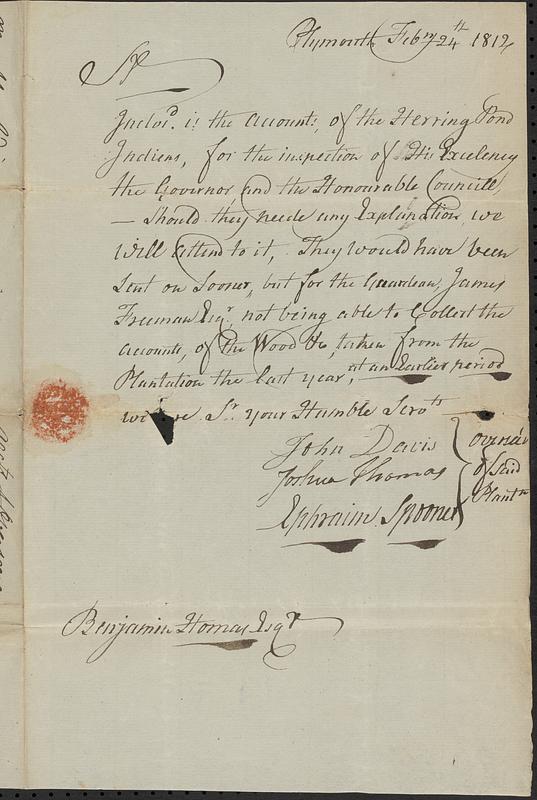 Plymouth Feby 24th 1812
Sr
Inclosd. is the accounts, of the Herring Pond
Indiens, for the inspection of His Excelency
the Governor and the Honourable Councill,
— Should they neede any Explanation, we
will attend to it, They would have been
Sent on Sooner, but for the Guardean, James
Freeman Esqr, not being able to Collect the
accounts, of the Wood &c, taken from the
Plantation the last year, at an Earlier period
we are Sr. your Humble Servts
John Davis
Joshua Thomas
Ephraim Spooner
overseers
of said
Plantn
Benjamin Homas Esqr